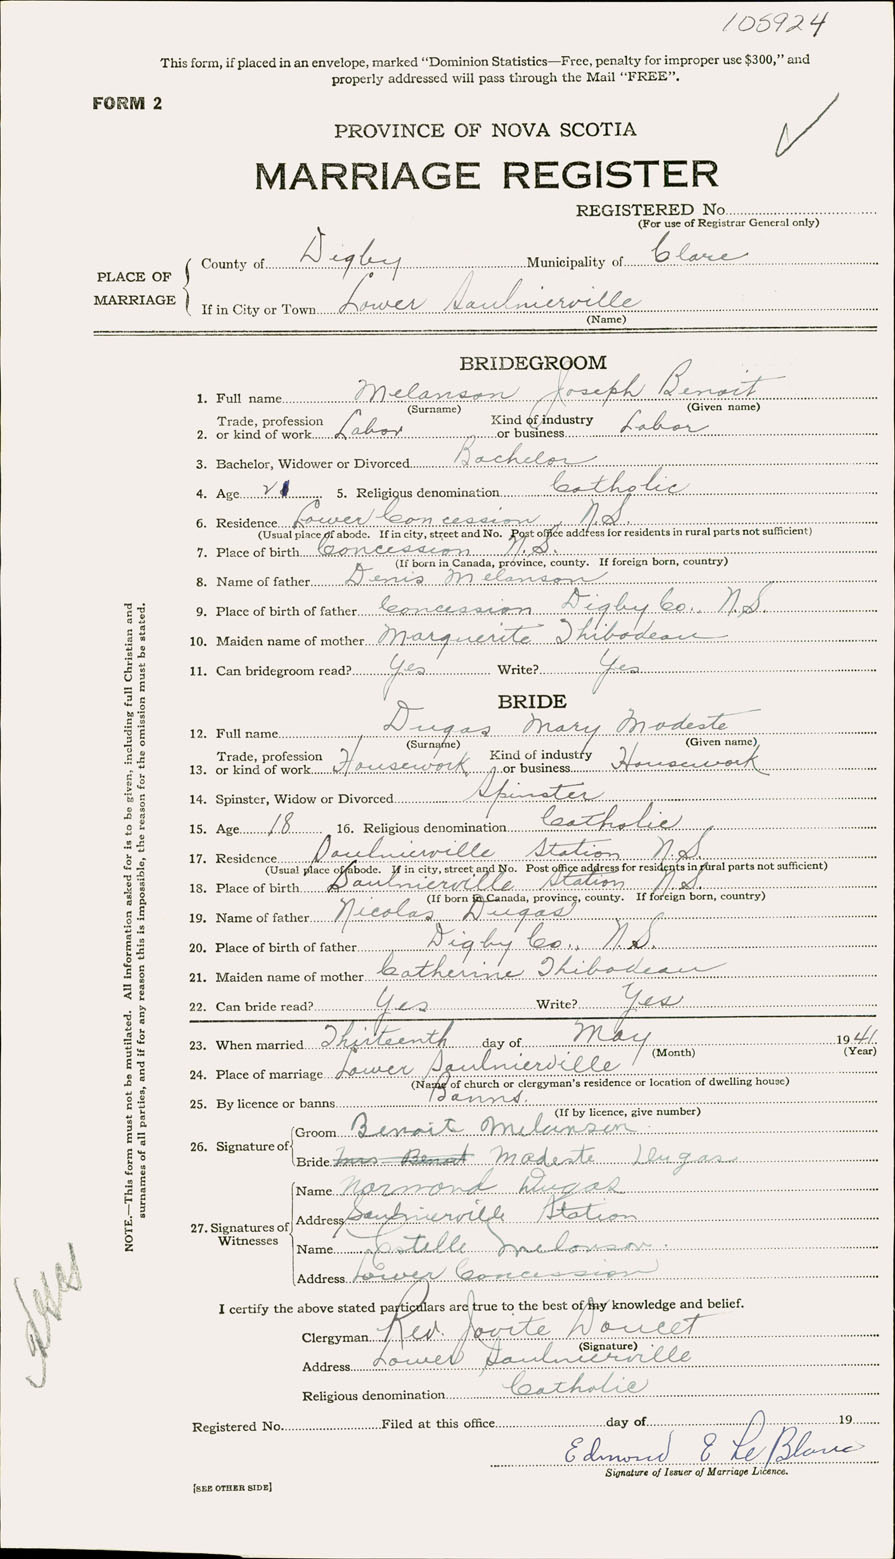 105924
This form, if placed in an envelope, marked “Dominion Statistics—Free, penalty for improper use $300,” and
properly addressed will pass through the Mail “FREE”.
FORM 2
PROVINCE OF NOVA SCOTIA
MARRIAGE REGISTER
REGISTERED No.
(For use of Registrar General only)
PLACE OF MARRIAGE
County of Digby Municipality of Clare
If in City or Town Lower Saulnierville
(Name)
BRIDEGROOM
1. Full name Melanson Joseph Benoit
(Surname) (Given name)
2. Trade, profession or kind of work Labor Kind of industry or business Labor
3. Bachelor, Widower or Divorced Bachelor
4. Age 21 5. Religious denomination Catholic
6. Residence Lower Concession N.S.
(Usual place of abode. If in city, street and No. Post office address for residents in rural parts not sufficient)
7. Place of birth Concession N.S.
(If born in Canada, province, county. If foreign born, country)
8. Name of father Denis Melanson
9. Place of birth of father Concession Digby Co., N.S.
10. Maiden name of mother Marguerite Thibodeau
11. Can bridegroom read? Yes Write? Yes
BRIDE
12. Full name Dugas Mary Modeste
(Surname) (Given name)
13. Trade, profession or kind of work Housework Kind of industry or business Housework
14. Spinster, Widow or Divorced Spinster
15. Age 18 16. Religious denomination Catholic
17. Residence Saulnierville Station N.S.
(Usual place of abode. If in city, street and No. Post office address for residents in rural parts not sufficient)
18. Place of birth Saulnierville Station N.S.
(If born in Canada, province, county. If foreign born, country)
19. Name of father Nicolas Dugas
20. Place of birth of father Digby Co., N.S.
21. Maiden name of mother Catherine Thibodeau
22. Can bride read? Yes Write? Yes
23. When married Thirteenth day of May 1941
(Month) (Year)
24. Place of marriage Lower Saulnierville
(Name of church or clergyman's residence or location of dwelling house)
25. By licence or banns Banns.
(If by licence, give number)
26. Signature of
Groom Benoit Melanson
Bride Mrs Benoit Modeste Dugas
27. Signatures of Witnesses
Name Normond Dugas
Address Saulnierville Station
Name Estelle Melanson
Address Lower Concession
I certify the above stated particulars are true to the best of my knowledge and belief.
Clergyman Rev. Jovite Doucet
(Signature)
Address Lower Saulnierville
Religious denomination Catholic
Registered No. Filed at this office day of 19
Edmond E Le Blanc
Signature of Issuer of Marriage Licence.
[SEE OTHER SIDE]
NOTE.—This form must not be mutilated. All information asked for is to be given, including full Christian and
surnames of all parties, and if for any reason this is impossible, the reason for the omission must be stated.